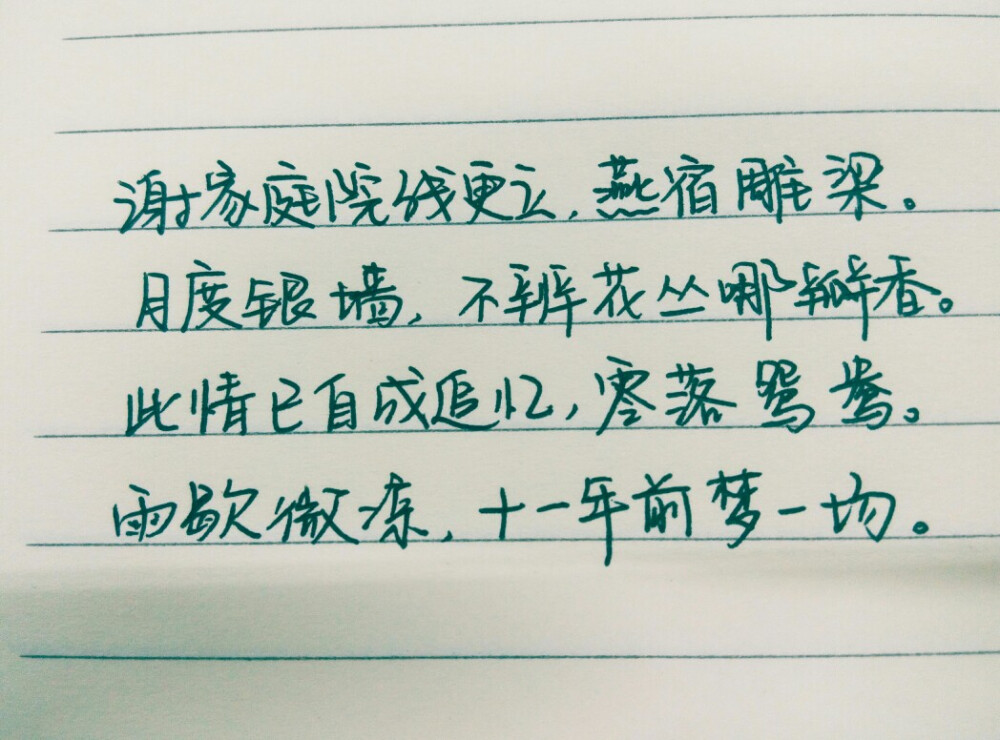 谢家庭院残更立,燕宿雕梁。
月度银墙,不辨花丛哪瓣香。
此情已自成追忆,零落鸳鸯。
雨歇微凉,十一年前梦一场。